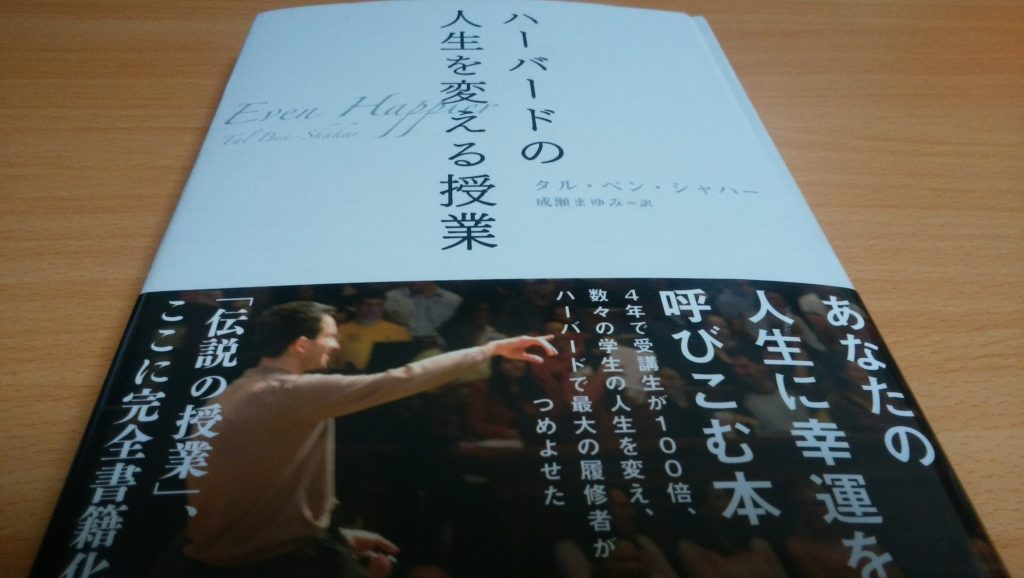 ハーバードの
人生を変える授業
Even Happier
Tal Ben-Shahar
タル・ベン・シャハー
成瀬まゆみ=訳
あなたの
人生に幸運を
呼びこむ本
4年で受講生が100倍、
数々の学生の人生を変え、
ハーバードで最大の履修者が
つめよせた
「伝説の授業」、
ここに完全書籍化